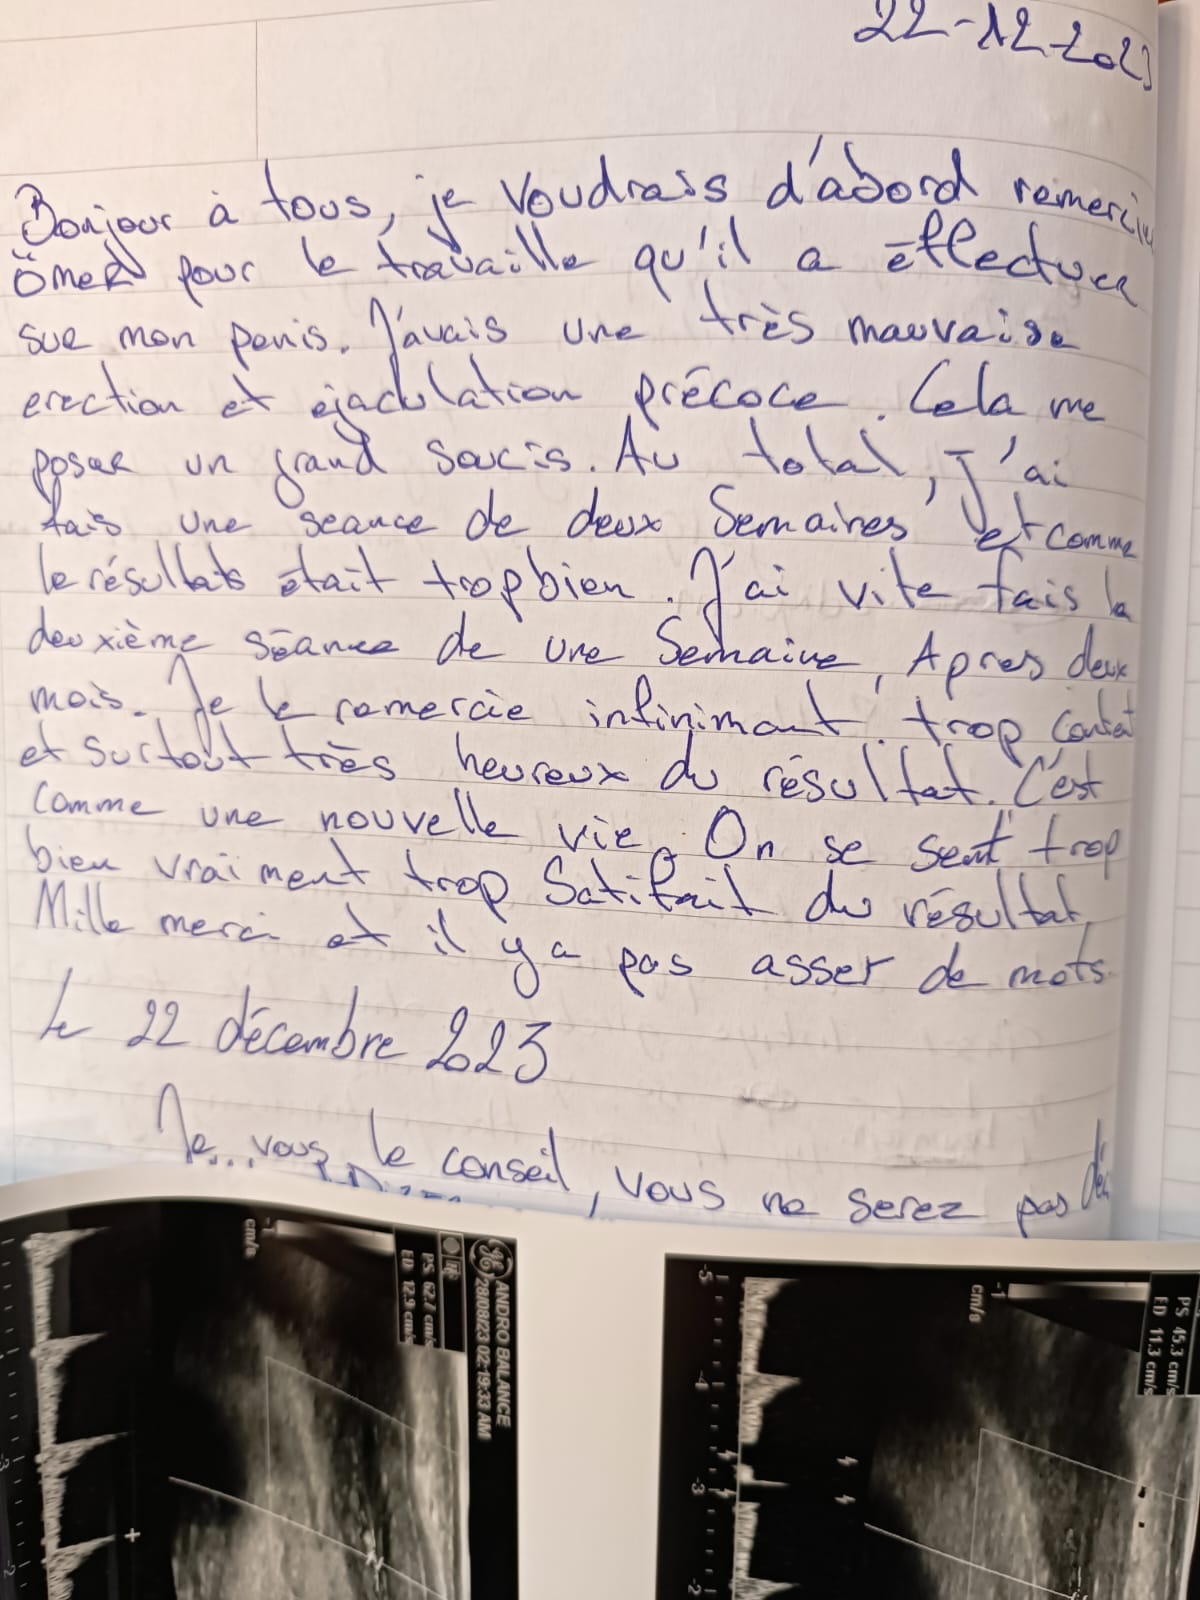 22-12-2023
Bonjour à tous, je voudrais d'abord remercier
Ömer pour le travaille qu'il a éffectuer
sur mon penis. J'avais une très mauvaise
erection et ejaculation précoce. Cela me
poser un grand soucis. Au total, j'ai
fais une seance de deux Semaines et comme
le résultats était trop bien. J'ai vite fais la
deuxième séance de une Semaine, Apres deux
mois. Je le remercie infiniment, trop content
et surtout très heureux du résultat. C'est
Comme une nouvelle vie. On se sent trop
bien vraiment trop Satifait du résultat,
Mille merci et il y a pas asser de mots.
Le 22 décembre 2023
Je vous le conseil, vous ne serez pas
-1
cm/s
PS 62.7 cm/s
ED 12.9 cm/s
ANDRO BALANCE
28/08/23 02:19:33 AM
-3
-2
-5
-4
-3
-2
-1
cm/s
PS 45.3 cm/s
ED 11.3 cm/s